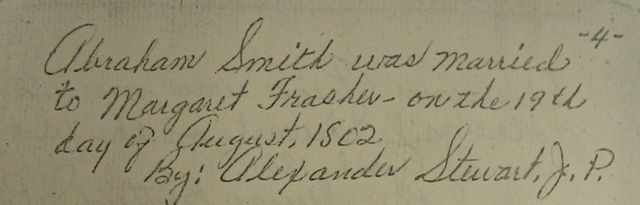 -4-
Abraham Smith was married
to Margaret Frasher - on the 19th
day of August, 1802
By: Alexander Stewart, J. P.